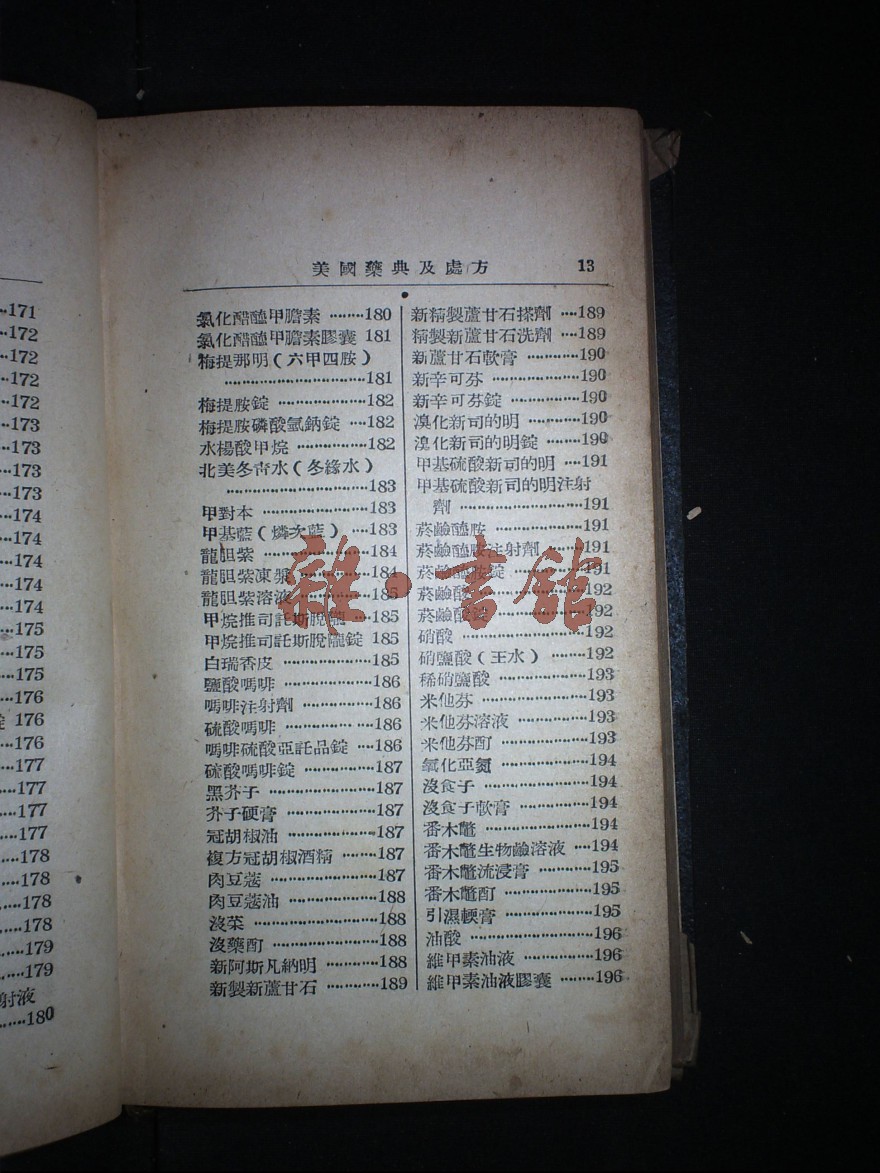 ‥171
‥172
‥172
‥172
‥172
‥173
‥173
‥173
‥173
‥174
‥174
‥174
‥174
‥175
‥175
‥175
‥176
錠 176
‥176
‥177
‥177
‥177
‥177
‥178
‥178
‥178
‥178
‥179
‥179
射液
‥180
美國藥典及處方 13
氯化醋醯甲膽素 ‥‥180
氯化醋醯甲膽素膠囊 181
梅提那明(六甲四胺)
‥‥181
梅提胺錠 ‥‥182
梅提胺磷酸氫鈉錠 ‥182
水楊酸甲烷 ‥‥182
北美冬靑水(冬綠水)
‥‥183
甲對本 ‥‥183
甲基藍(燐次藍) ‥183
龍胆紫 ‥‥184
龍胆紫凍漿 ‥‥184
龍胆紫溶液 ‥‥185
甲烷推司託斯脫隴 ‥185
甲烷推司託斯脫隴錠 185
白瑞香皮 ‥‥185
鹽酸嗎啡 ‥‥186
嗎啡注射劑 ‥‥186
硫酸嗎啡 ‥‥186
嗎啡硫酸亞託品錠 ‥186
硫酸嗎啡錠 ‥‥187
黑芥子 ‥‥187
芥子硬膏 ‥‥187
冠胡椒油 ‥‥187
複方冠胡椒酒精 ‥‥187
肉豆蔻 ‥‥187
肉豆蔻油 ‥‥188
沒藥 ‥‥188
沒藥酊 ‥‥188
新阿斯凡納明 ‥‥188
新製新蘆甘石 ‥‥189
新精製蘆甘石搽劑 ‥189
精製新蘆甘石洗劑 ‥189
新蘆甘石軟膏 ‥‥190
新辛可芬 ‥‥190
新辛可芬錠 ‥‥190
溴化新司的明 ‥‥190
溴化新司的明錠 ‥‥190
甲基硫酸新司的明 ‥191
甲基硫酸新司的明注射
劑 ‥‥191
菸鹼醯胺 ‥‥191
菸鹼醯胺注射劑 ‥‥191
菸鹼醯胺錠 ‥‥191
菸鹼酸 ‥‥192
菸鹼酸錠 ‥‥192
硝酸 ‥‥192
硝鹽酸(王水) ‥‥192
稀硝鹽酸 ‥‥193
米他芬 ‥‥193
米他芬溶液 ‥‥193
米他芬酊 ‥‥193
氧化亞氮 ‥‥194
沒食子 ‥‥194
沒食子軟膏 ‥‥194
番木鼈 ‥‥194
番木鼈生物鹼溶液 ‥194
番木鼈流浸膏 ‥‥195
番木鼈酊 ‥‥195
引濕輭膏 ‥‥195
油酸 ‥‥196
維甲素油液 ‥‥196
維甲素油液膠囊 ‥‥196
雜·書館